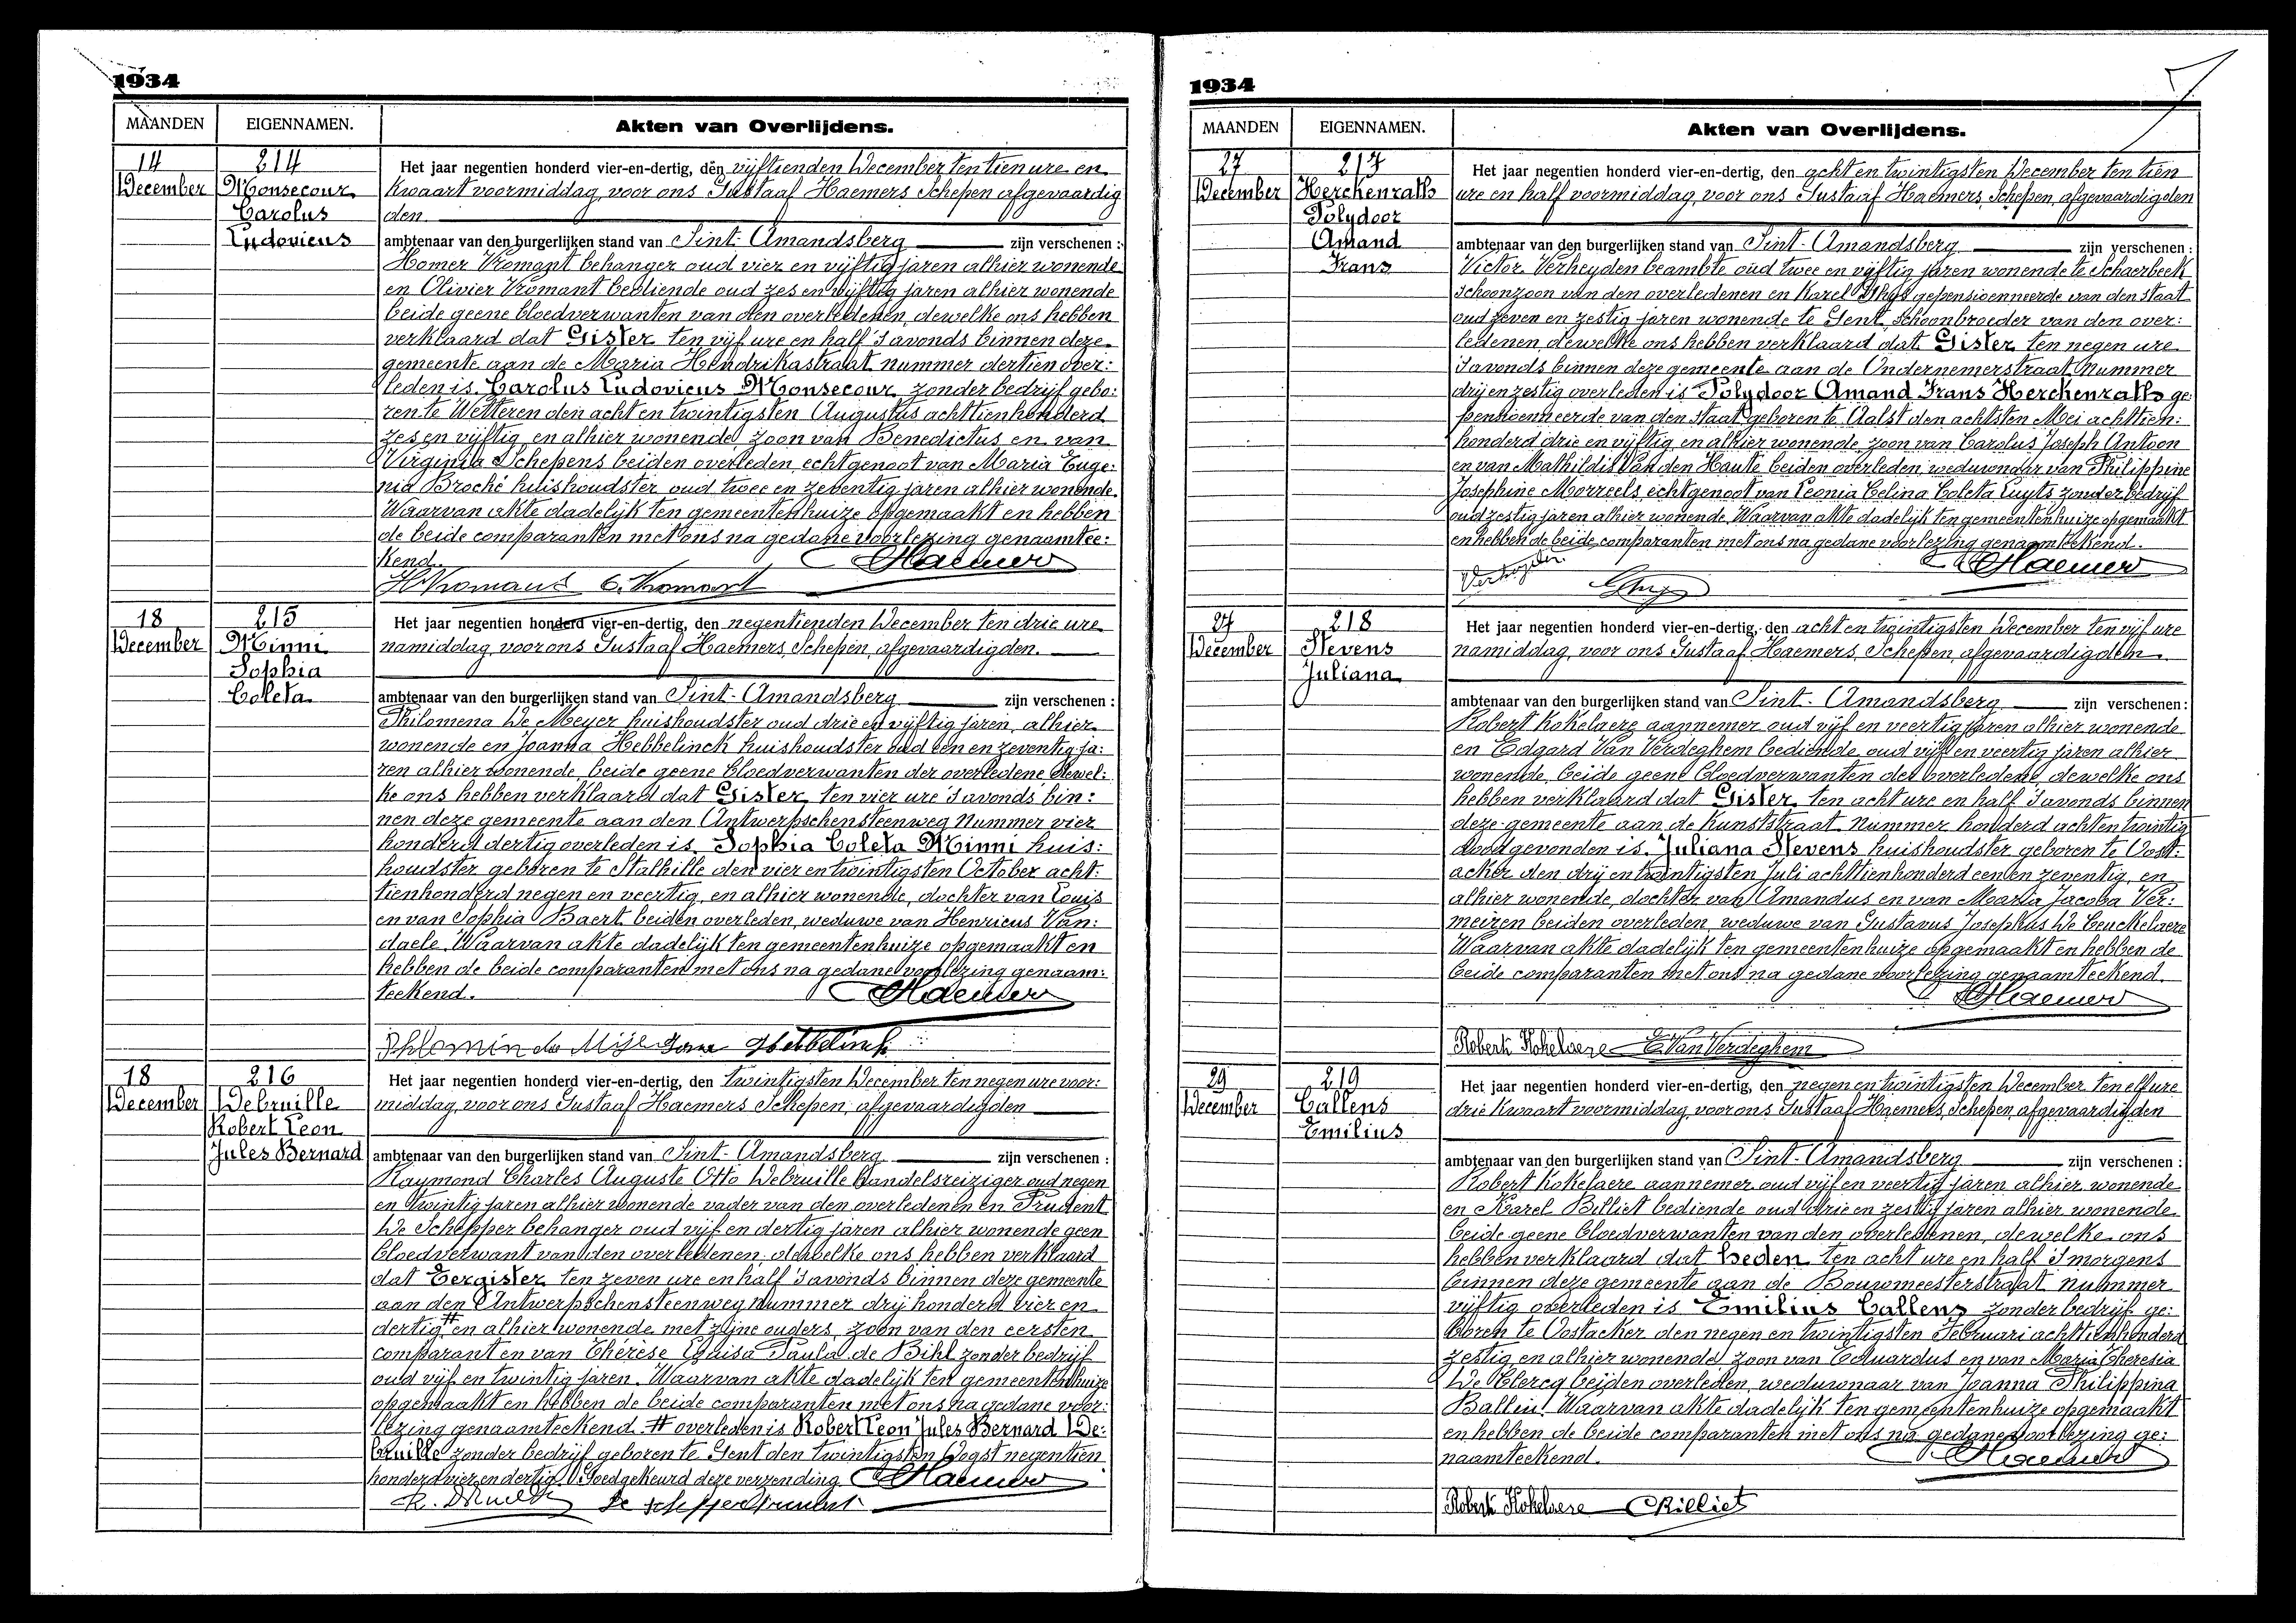 1934
MAANDEN EIGENNAMEN. Akten van Overlijdens.
14 214 Het jaar negentien honderd vier-en-dertig, den vijftienden December ten tien ure en
December Monsecour kwaart voormiddag, voor ons Gustaaf Haemers Schepen afgevaardig
Carolus den
Ludovicus ambtenaar van den burgerlijken stand van Sint-Amandsberg zijn verschenen :
Homer Vromant behanger oud vier en vijftig jaren alhier wonende
en Olivier Vromant bediende oud zes en vijftig jaren alhier wonende
beide geene bloedverwanten van den overledenen, dewelke ons hebben
verklaard dat Gister ten vijf ure en half 's avonds binnen deze
gemeente aan de Maria Hendrikastraat nummer dertien over:
leden is Carolus Ludovicus Monsecour zonder bedrijf gebo:
ren te Wetteren den acht en twintigsten Augustus achttienhonderd
zes en vijftig en alhier wonende, zoon van Benedictus en van
Virginia Schepens beiden overleden, echtgenoot van Maria Euge:
nia Broché huishoudster oud twee en zeventig jaren alhier wonende.
Waarvan akte dadelijk ten gemeentenhuize opgemaakt en hebben
de beide comparanten met ons na gedane voorlezing genaamtee:
kend. GHaemers
H Vromant O. Vromant
18 215 Het jaar negentien honderd vier-en-dertig, den negentienden December ten drie ure
December Minni namiddag, voor ons Gustaaf Haemers, Schepen, afgevaardigden.
Sophia
Coleta ambtenaar van den burgerlijken stand van Sint-Amandsberg zijn verschenen :
Philomena De Meyer huishoudster oud drie en vijftig jaren, alhier
wonende en Joanna Hebbelinck huishoudster oud een en zeventig ja:
ren alhier wonende, beide geene bloedverwanten der overledene, dewel:
ke ons hebben verklaard dat Gister ten vier ure 's avonds bin:
nen deze gemeente aan den Antwerpschensteenweg nummer vier
honderd dertig overleden is Sophia Coleta Minni huis:
houdster geboren te Stalhille den vier en twintigsten October acht:
tienhonderd negen en veertig, en alhier wonende, dochter van Louis
en van Sophia Baert beiden overleden, weduwe van Henricus Van:
daele. Waarvan akte dadelijk ten gemeentenhuize opgemaakt en
hebben de beide comparanten met ons na gedane voorlezing genaam:
teekend. GHaemers
18 216 Het jaar negentien honderd vier-en-dertig, den twintigsten December ten negen ure voor:
December Debruille middag, voor ons Gustaaf Haemers Schepen, afgevaardigden
Robert Leon
Jules Bernard ambtenaar van den burgerlijken stand van Sint-Amandsberg zijn verschenen :
Raymond Charles Auguste Otto Debruille handelsreiziger oud negen
en twintig jaren alhier wonende vader van den overledenen en Prudent
De Schepper behanger oud vijf en dertig jaren alhier wonende geen
bloedverwant van den overledenen, dewelke ons hebben verklaard
dat Eergister ten zeven ure en half 's avonds binnen deze gemeente
aan den Antwerpschensteenweg nummer drij honderd vier en
dertig # en alhier wonende met zijne ouders, zoon van den eersten
comparant en van Thérèse Louisa Paula de Bihl zonder bedrijf
oud vijf en twintig jaren. Waarvan akte dadelijk ten gemeentenhuize
opgemaakt en hebben de beide comparanten met ons na gedane voor:
lezing genaamteekend. # overleden is Robert Leon Jules Bernard De:
bruille zonder bedrijf geboren te Gent den twintigsten Oogst negentien
honderd vier en dertig. Goedgekeurd deze verzending GHaemers
De Schepper Prudent
1934
MAANDEN EIGENNAMEN. Akten van Overlijdens.
27 217 Het jaar negentien honderd vier-en-dertig, den acht en twintigsten December ten tien
December Herckenrath ure en half voormiddag, voor ons Gustaaf Haemers, Schepen, afgevaardigden
Polydoor
Amand ambtenaar van den burgerlijken stand van Sint-Amandsberg zijn verschenen :
Frans Victor Verheyden beambte oud twee en vijftig jaren wonende te Schaerbeek
schoonzoon van den overledenen en Karel Thys gepensioenneerde van den staat
oud zeven en zestig jaren wonende te Gent, schoonbroeder van den over:
ledenen, dewelke ons hebben verklaard dat Gister ten negen ure
's avonds binnen deze gemeente aan de Ondernemerstraat nummer
drij en zestig overleden is Polydoor Amand Frans Herckenrath ge:
pensioenneerde van den staat geboren te Aalst den achtsten Mei achttien:
honderd drie en vijftig en alhier wonende zoon van Carolus Joseph Antoon
en van Mathildis Van den Haute beiden overleden, weduwnaar van Philippine
Josephine Morreels, echtgenoot van Leonia Celina Coleta Luyts zonder bedrijf
oud zestig jaren alhier wonende. Waarvan akte dadelijk ten gemeentenhuize opgemaakt
en hebben de beide comparanten met ons na gedane voorlezing genaamteekend.
Verheyden GHaemers
27 218 Het jaar negentien honderd vier-en-dertig, den acht en twintigsten December ten vijf ure
December Stevens namiddag, voor ons Gustaaf Haemers, Schepen, afgevaardigden
Juliana
ambtenaar van den burgerlijken stand van Sint-Amandsberg zijn verschenen :
Robert Kokelaere aannemer oud vijf en veertig jaren alhier wonende
en Edgard Van Verdeghem bediende oud vijf en veertig jaren alhier
wonende, beide geene bloedverwanten der overledene, dewelke ons
hebben verklaard dat Gister ten acht ure en half 's avonds binnen
deze gemeente aan de Kunststraat nummer honderd acht en twintig
dood gevonden is Juliana Stevens huishoudster geboren te Oost:
acker den drij en twintigsten Juli achttienhonderd een en zeventig, en
alhier wonende, dochter van Amandus en van Maria Jacoba Ver:
meizen beiden overleden, weduwe van Gustavus Josephus De Ceuckelaere
Waarvan akte dadelijk ten gemeentenhuize opgemaakt en hebben de
beide comparanten met ons na gedane voorlezing genaamteekend.
GHaemers
Robert Kokelaere E. Van Verdeghem
29 219 Het jaar negentien honderd vier-en-dertig, den negen en twintigsten December ten elf ure
December Callens drie kwaart voormiddag, voor ons Gustaaf Haemers, Schepen, afgevaardigden
Emilius
ambtenaar van den burgerlijken stand van Sint-Amandsberg zijn verschenen :
Robert Kokelaere aannemer oud vijf en veertig jaren alhier wonende
en Karel Billiet bediende oud drie en zestig jaren alhier wonende
beide geene bloedverwanten van den overledenen, dewelke ons
hebben verklaard dat heden ten acht ure en half 's morgens
binnen deze gemeente aan de Bouwmeesterstraat nummer
vijftig overleden is Emilius Callens zonder bedrijf ge:
boren te Oostacker den negen en twintigsten Februari achttienhonderd
zestig en alhier wonende zoon van Eduardus en van Maria Theresia
De Clercq beiden overleden, weduwnaar van Joanna Philippina
Ballin. Waarvan akte dadelijk ten gemeentenhuize opgemaakt
en hebben de beide comparanten met ons na gedane voorlezing ge:
naamteekend. GHaemers
Robert Kokelaere CBilliet